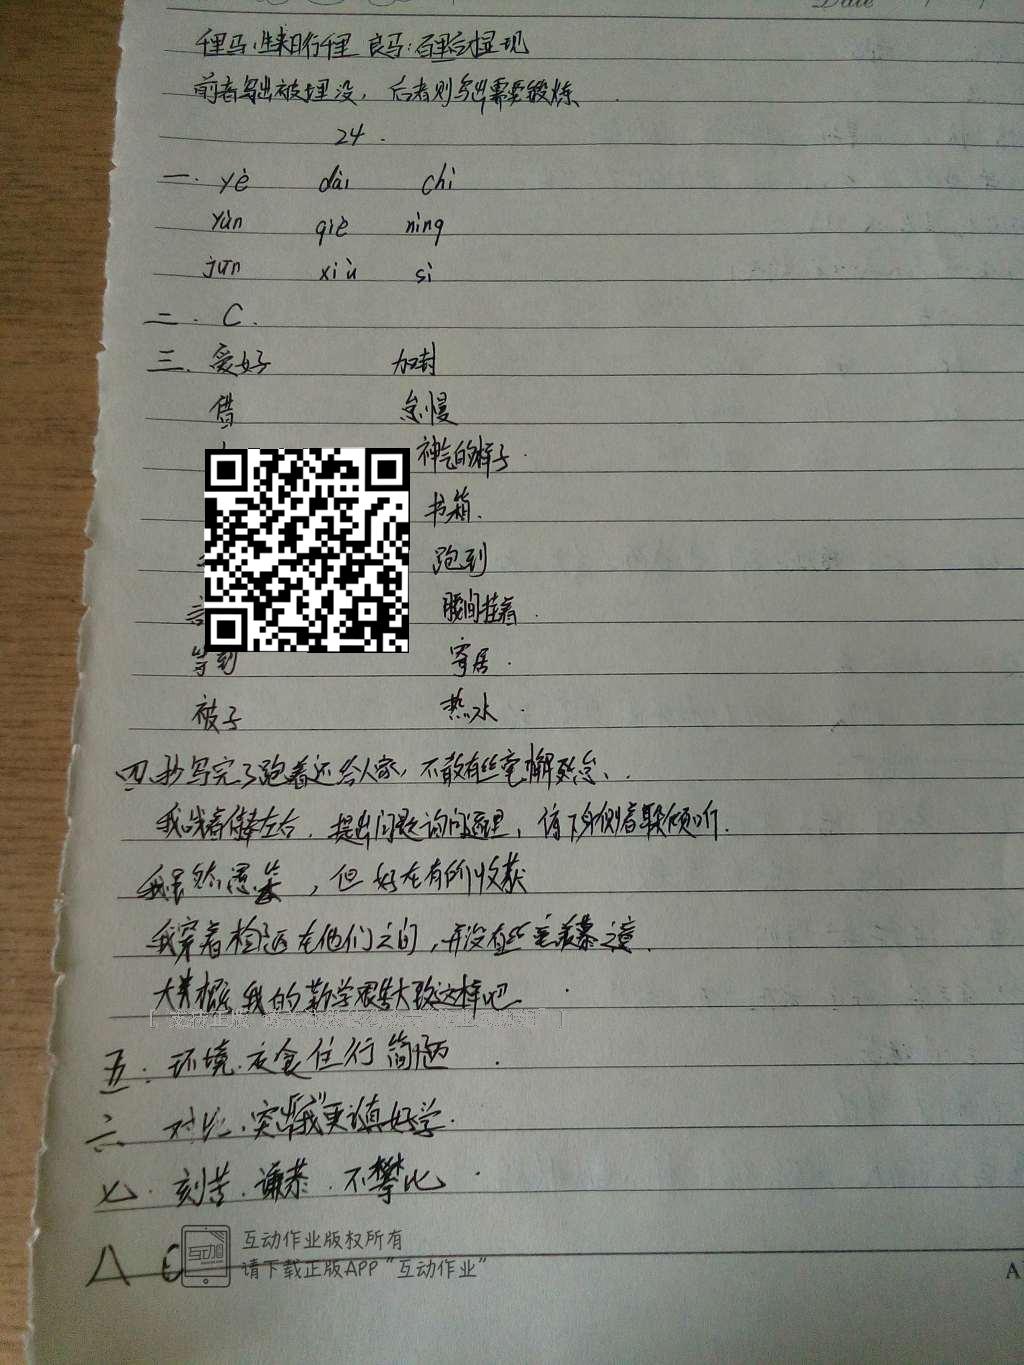 Date
千里马:生来日行千里 良马:百里后才显现
前者写出被埋没，后者则写出需要锻炼
24.
一. yè dài chì
yùn qiè nìng
jūn xiù sì
二. C.
三. 爱好 加封
借 怠慢
神气的样子.
书箱.
跑到
言 腰间挂着.
等到 寄居.
被子 热水.
四.抄写完了跑着还给人家，不敢有丝毫懈怠、.
我站着侍奉左右，提出问题询问道理，俯下身侧着耳朵倾听.
我虽然愚笨，但好在有所收获
我穿着 在他们之间，并没有丝毫羡慕之意.
大概我的勤学艰苦大致这样吧.
五.环境.衣食住行 简陋.
六 对比.突出"我"更认真好学.
七.刻苦.谦恭.不攀比.
互动作业版权所有
请下载正版APP“互动作业”
A